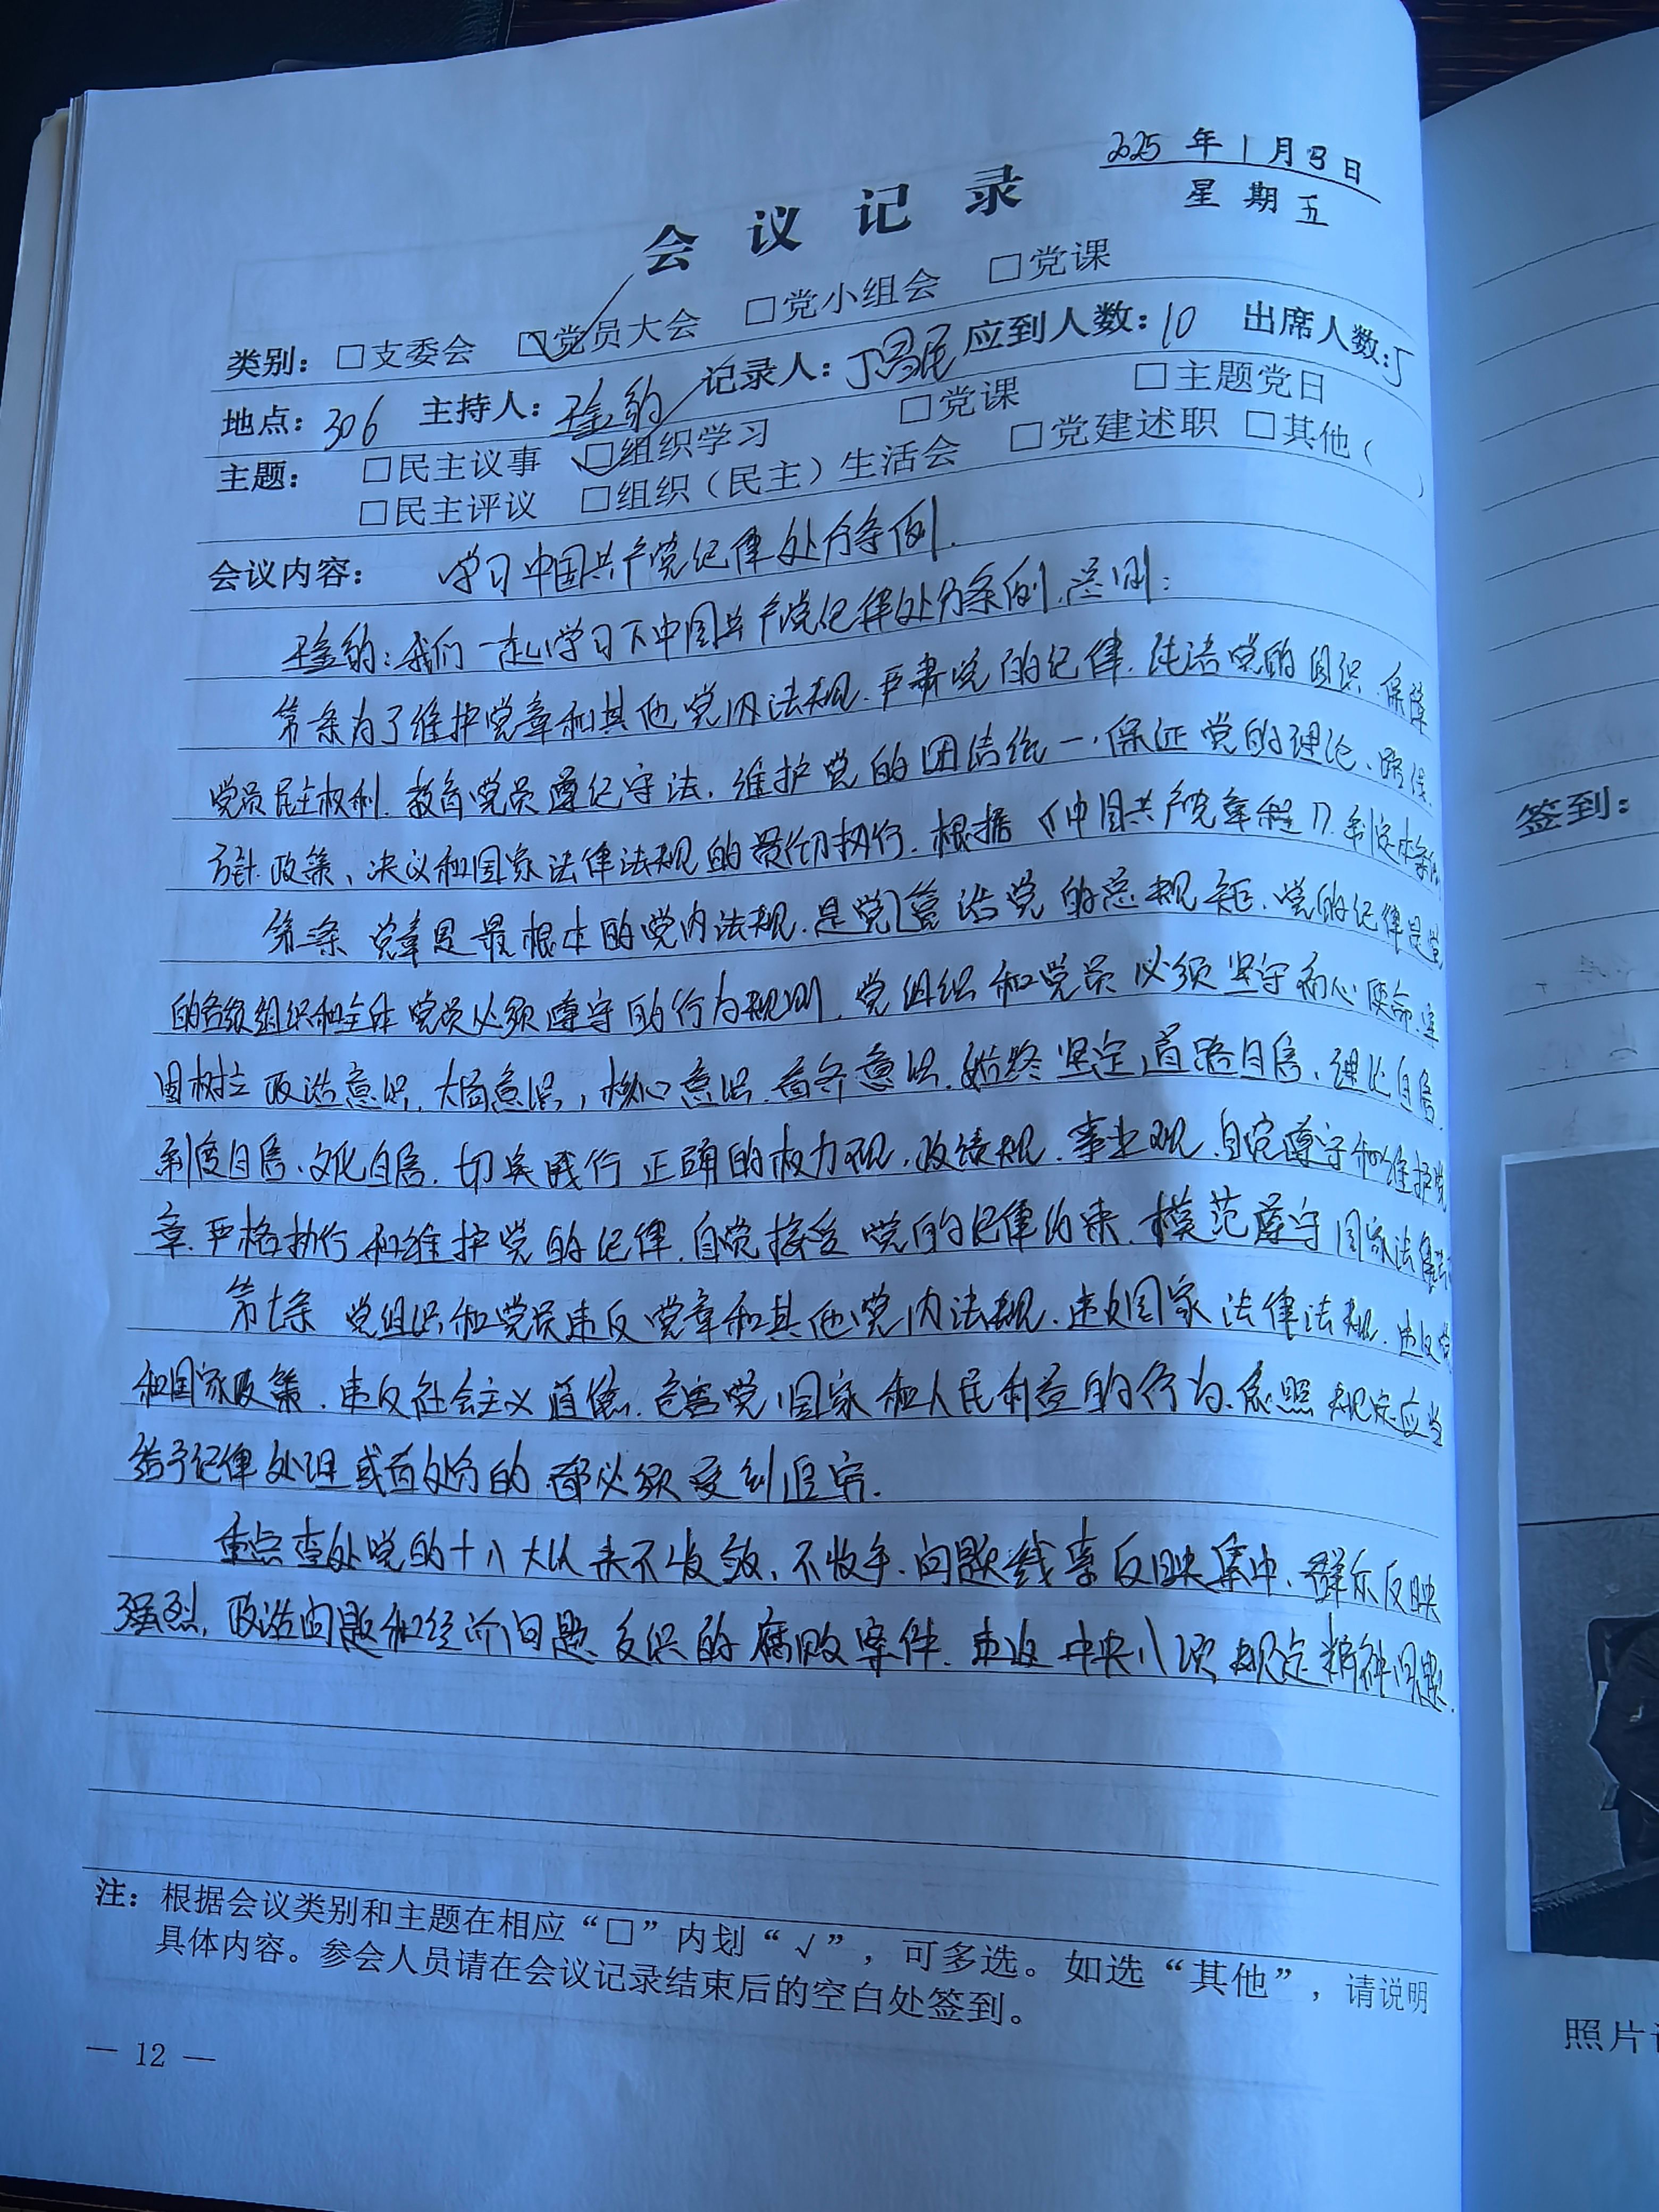 2025年1月3日
星期五
会议记录
类别：□支委会 ☑党员大会 □党小组会 □党课
地点：306 主持人： 记录人：丁昌民 应到人数：10 出席人数：
主题： □民主议事 ☑组织学习 □党课 □主题党日
□民主评议 □组织（民主）生活会 □党建述职 □其他（ ）
会议内容： 学习中国共产党纪律处分条例.
我们一起学习下中国共产党纪律处分条例.总则：
第条为了维护党章和其他党内法规.严肃党的纪律.纯洁党的组织.保障
党员民主权利.教育党员遵纪守法.维护党的团结统一.保证党的理论、路线、
方针.政策、决议和国家法律法规的贯彻执行.根据《中国共产党章程》.制定本条例
第二条 党章是最根本的党内法规.是管党治党的总规矩.党的纪律是党
的各级组织和全体党员必须遵守的行为规则.党组织和党员必须坚守初心使命.牢
固树立政治意识.大局意识，核心意识.看齐意识.始终坚定道路自信、理论自信、
制度自信、文化自信.切实践行正确的权力观.政绩观.事业观.自觉遵守和维护党
章.严格执行和维护党的纪律.自觉接受党的纪律约束.模范遵守国家法律法
第七条 党组织和党员违反党章和其他党内法规.违反国家法律法规.违反党
和国家政策.违反社会主义道德.危害党、国家和人民利益的行为.依照规定应当
给予纪律处理或者处分的.都必须受到追究.
重点查处党的十八大以来不收敛、不收手.问题线索反映集中、群众反映
强烈.政治问题和经济问题交织的腐败案件.违反中央八项规定精神问题.
注：根据会议类别和主题在相应“□”内划“√”，可多选。如选“其他”，请说明
具体内容。参会人员请在会议记录结束后的空白处签到。
— 12 —
签到：
照片